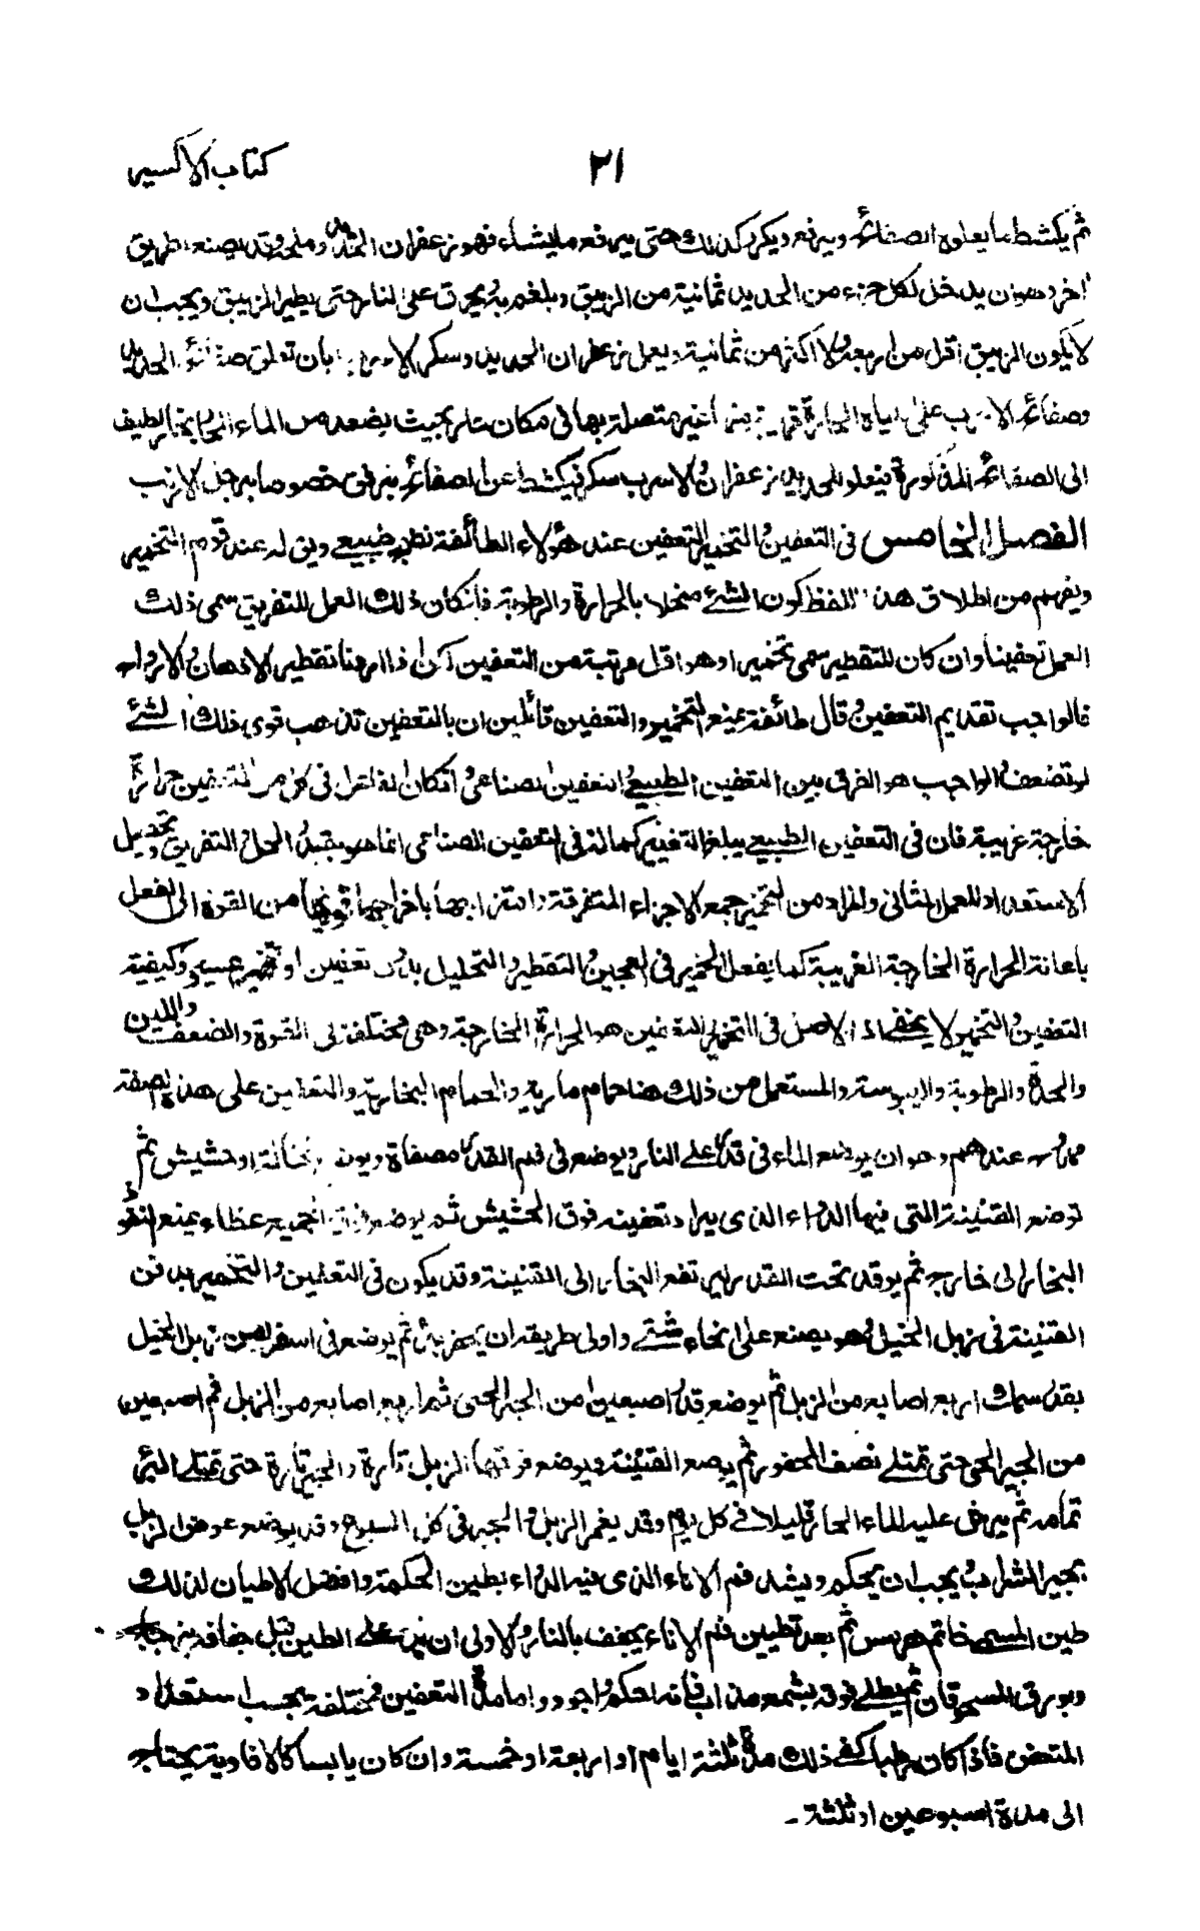 كتاب الاكسير
٢١
ثم يكشط ما يعلوه الصفائح ويرفع ويكرر كذلك حتى يرفع ما يشاء فهو زعفران الحديد وملحه وقد يصنع بطريق
اخر وهو ان يدخل لكل جزء من الحديد ثمانية من الزيبق ويلغم به ويحرق على النار حتى يطير الزيبق ويجب ان
لا يكون الزيبق اقل من اربعة ولا اكثر من ثمانية ويعمل زعفران الحديد وسكر الاسرب بان تعلق صفائح الحديد
وصفائح الاسرب على المياه الحارة قريبة منها غير متصلة بها فى مكان حار بحيث يصعد من الماء الحار بخار لطيف
الى الصفائح المذكورة فيعلو الحديد زعفران والاسرب سكر فيكشط عن الصفائح برفق خصوصا برجل الارنب
الفصل الخامس فى التعفين والتخمير التعفين عند هؤلاء الطائفة نظير طبيعي ويق له عند قوم التخمير
ويفهم من اطلاق هذا اللفظ كون الشئ منحلا بالحرارة والرطوبة فانكان ذلك العمل للتفريق سمى ذلك
العمل تعفينا وان كان للتقطير سمى تخميرا وهو اقل مرتبة من التعفين لكن اذا اردنا تقطير الادهان والارواح
قالوا يجب تقديم التعفين وقال طائفة بمنع التخمير والتعفين قائلين ان بالتعفين تذهب قوى ذلك الشئ
او تضعف والواجب هو الفرق بين التعفين الطبيعي والتعفين الصناعى وانكان لا فى كل من التعفين حرارة
خارجة غريبة فان فى التعفين الطبيعي يبلغ التغير كماله وفى التعفين الصناعى انما هو بقيد الحل والتفريق وتحصيل
الاستعداد للعمل الثانى والمراد من التخمير جمع الاجزاء المتفرقة وامتزاجها باخراجها قوتها من القوة الى الفعل
باعانة الحرارة الخارجة الغريبة كما يفعل الخمير فى العجين والتقطير والتحليل بدون تعفين او تخمير عسير وكيفية
التعفين والتخمير لا يخفى ان الاصل فى التخمير والتعفين هو الحرارة الخارجة وهى مختلفة فى القوة والضعف واللين
والحدة والرطوبة واليبوسة والمستعمل من ذلك هنا حمام ماريه والحمام البخارية والتعفين على هذه الصفة
عندهم وهو ان يوضع الماء فى قدر على النار ويوضع فى فم القدر مصفاة ويوضع نخالة او حشيش ثم
توضع القنينة التى فيها الدواء الذى يراد تعفينه فوق الحشيش ثم يوضع فوق الجميع غطاء يمنع نفوذ
البخار الى خارج ثم يوقد تحت القدر ليرتفع البخار الى القنينة وقد يكون فى التعفين والتخمير بدفن
القنينة فى زبل الخيل وهو يصنع على انحاء شتى واولى طريقه ان يحفر بئر ثم يوضع فى اسفله من زبل الخيل
بقدر سمك اربع اصابع من الزبل ثم يوضع قدر اصبعين من الجير الحى ثم اربع اصابع من الزبل ثم اصبعين
من الجير الحى حتى تمتلى نصف المحفور ثم يوضع القنينة ويوضع فوقها الزبل تارة والجير تارة حتى تمتلى البئر
تمامه ثم يرش عليه الماء الحار قليلا فى كل يوم وقد يغير الزبل والجير فى كل اسبوع وقد يوضع عوض الزبل
بجير الشراب ويجب ان يحكم ويشد فم الاناء الذى فيه الدواء بطين الحكمة وافضل الاطيان لذلك
طين المسمى خاتم هرمس ثم بعد تطيين فم الاناء يجفف بالنار والاولى ان يرش على الطين قبل جفافه زجاج
وبورق المسحوقان ثم يطلى فوقه بشمع مذاب فانه احكم واجود واما مدة التعفين فمختلفة بحسب استعداد
المتعفن فاذا كان رطبا كفى ذلك مدة ثلثة ايام او اربعة او خمسة وان كان يابسا كالافاوية يحتاج
الى مدة اسبوعين او ثلثة -